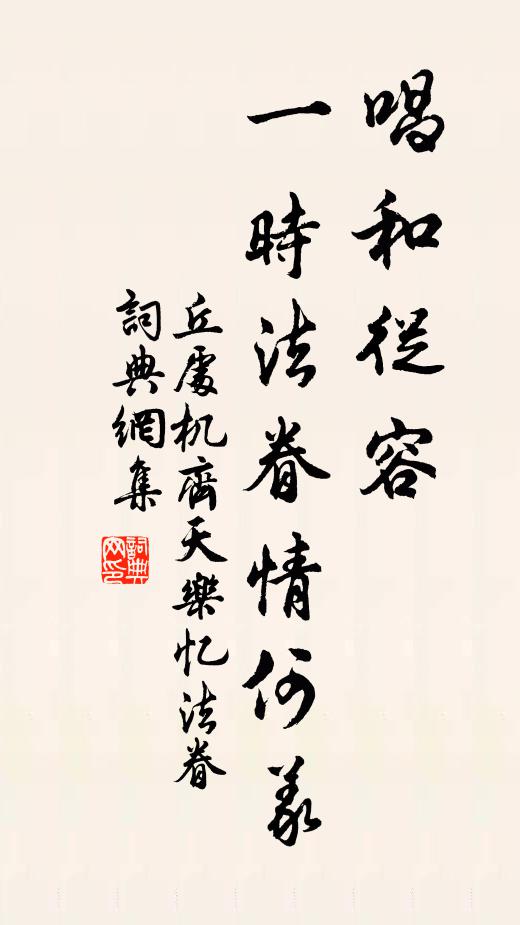 唱和從容
一時法眷情何義
丘處机齊天樂忆法眷
詞典網集
詞典網印